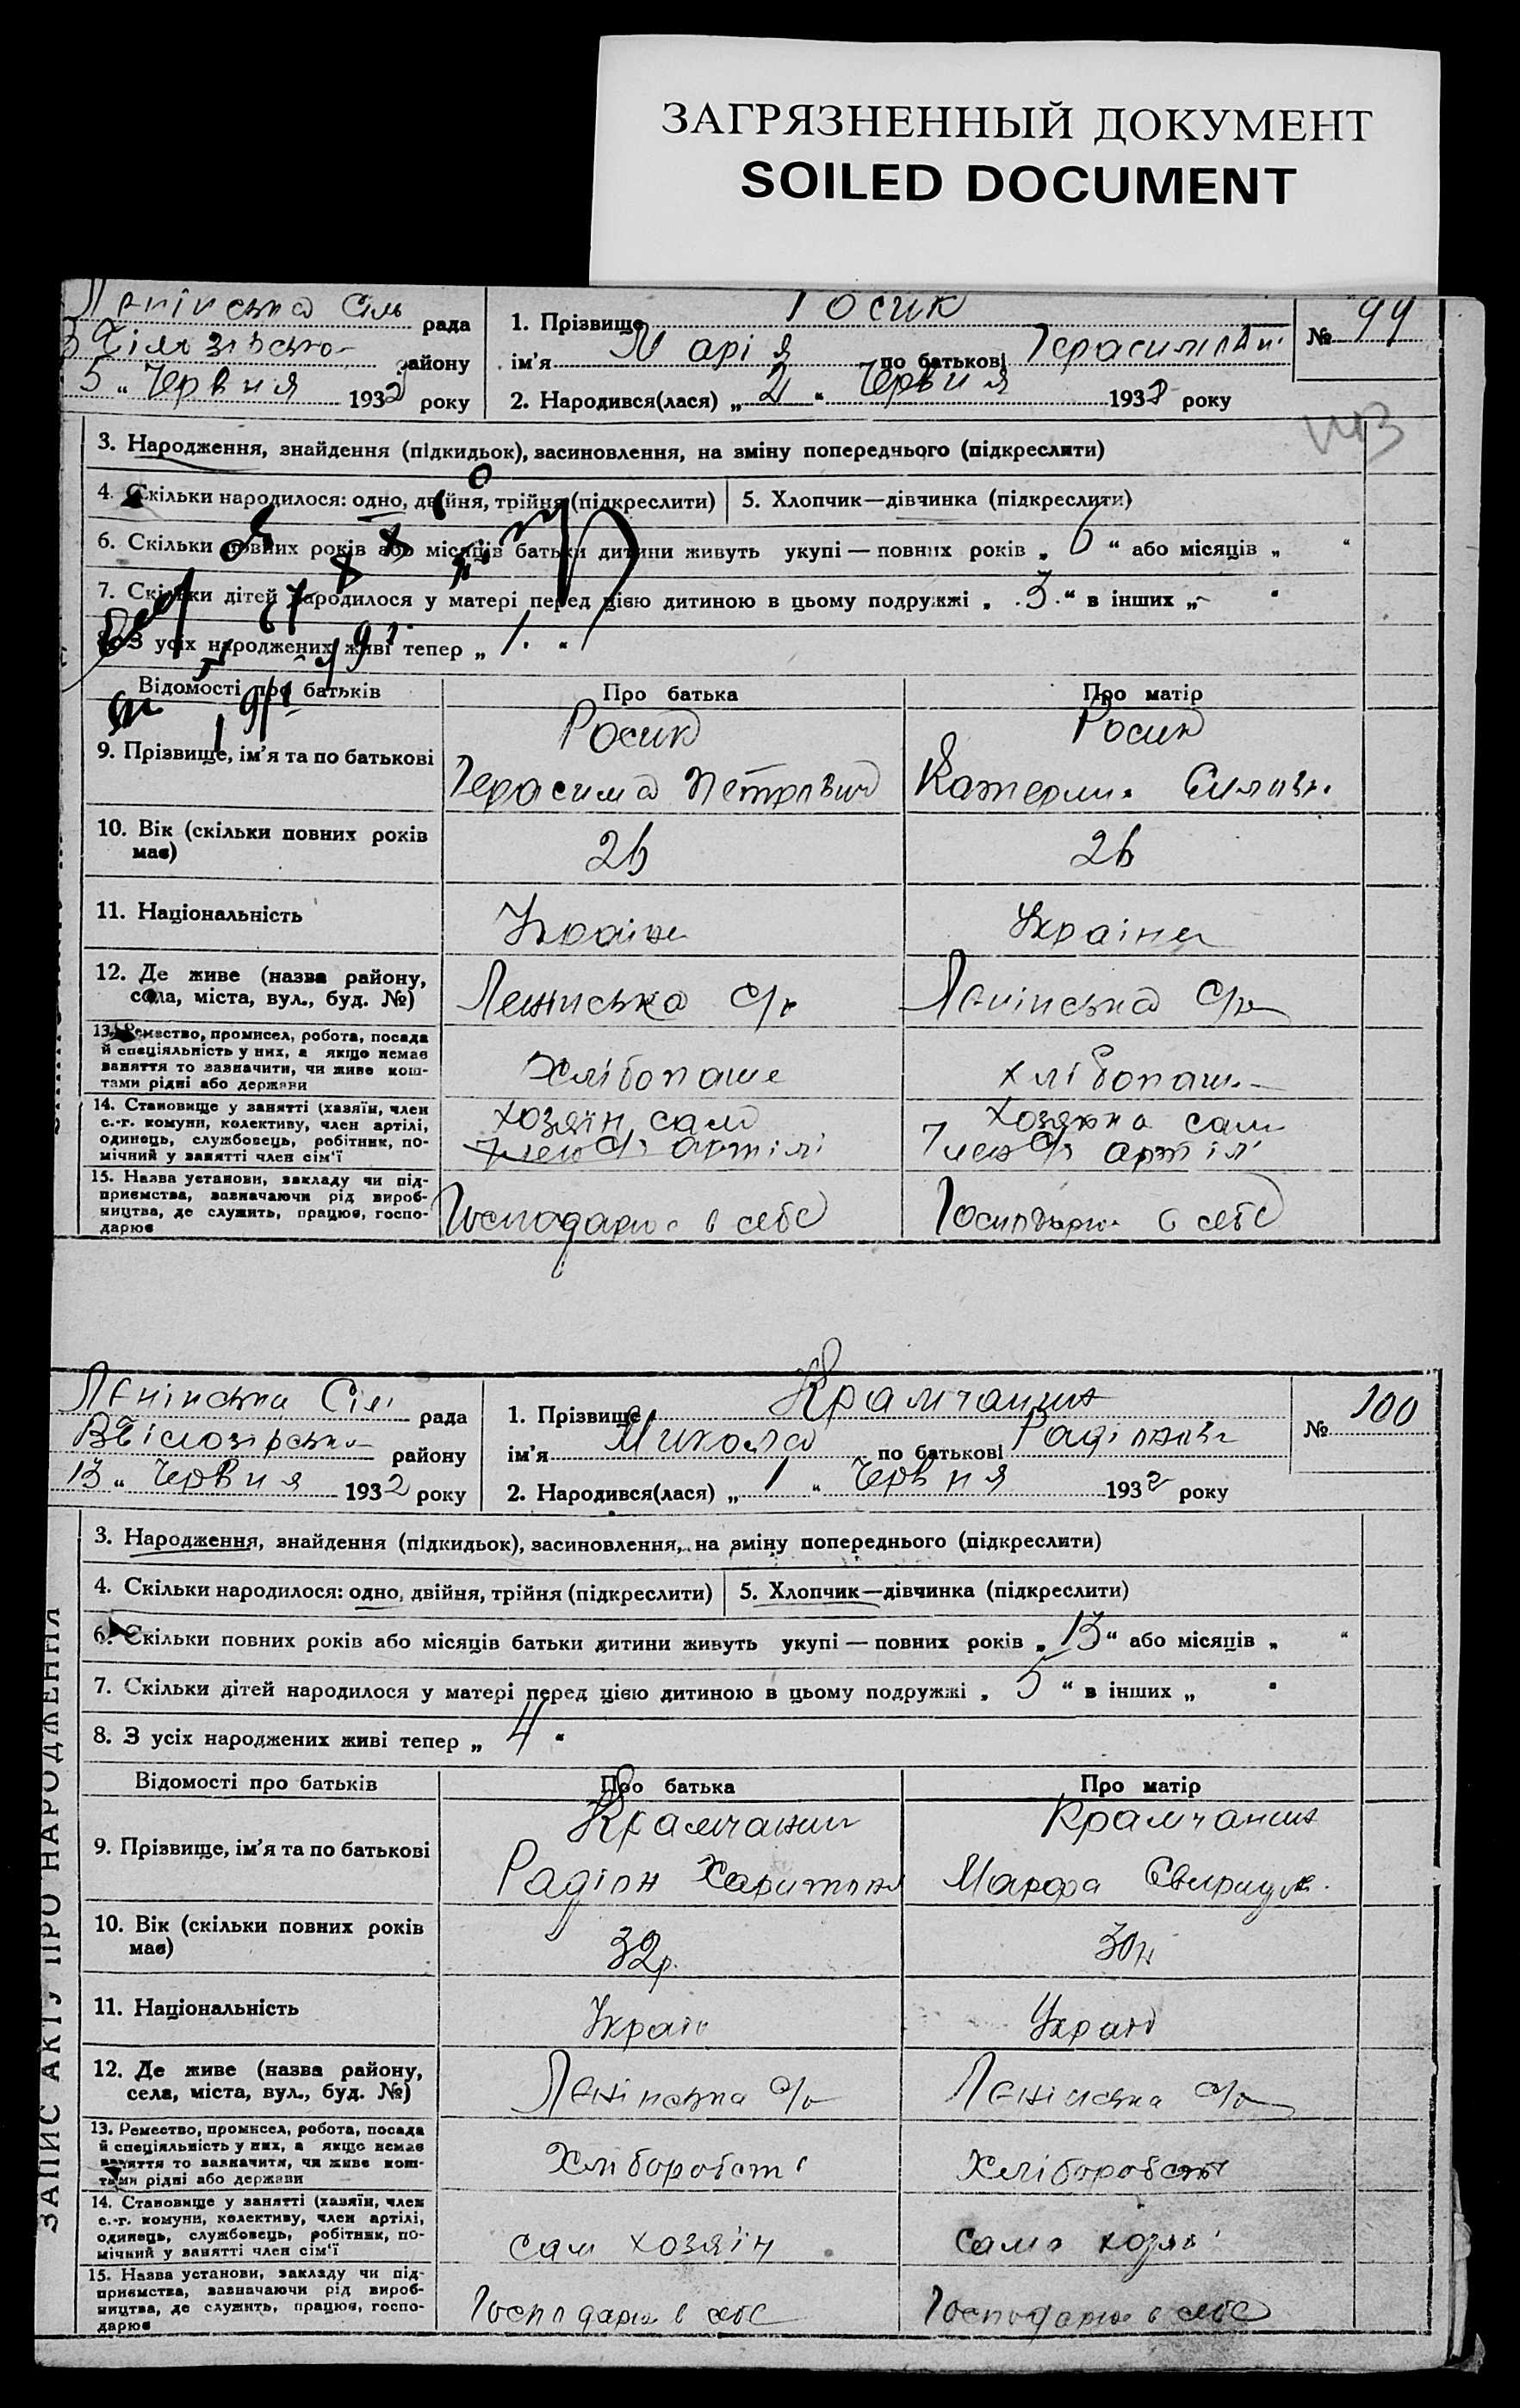 ЗАГРЯЗНЕННЫЙ ДОКУМЕНТ
SOILED DOCUMENT
Ленінська Сіль рада
району
5 " Червня 1932 року
1. Прізвище Росик
ім'я Марія по батькові
2. Народився(лася) „ 2 " Червня 1932 року
№ 99
3. Народження, знайдення (підкидьок), засиновлення, на зміну попереднього (підкреслити)
4. Скільки народилося: одно, двійня, трійня (підкреслити) 5. Хлопчик—дівчинка (підкреслити)
6. Скільки повних років або місяців батьки дитини живуть укупі — повних років „ 6 " або місяців „ "
7. Скільки дітей народилося у матері перед цією дитиною в цьому подружжі „ 3 " в інших „ - "
8. З усіх народжених живі тепер „ 1 "
Відомості про батьків Про батька Про матір
9. Прізвище, ім'я та по батькові
Росик Росик
Герасима Петрович Катерин
10. Вік (скільки повних років має)
26 26
11. Національність
Україн Україн
12. Де живе (назва району, села, міста, вул., буд. №)
Ленінська с/р Ленінська с/р
13. Ремество, промисел, робота, посада
й спеціяльність у них, а якщо немає
заняття то зазначити, чи живе кош-
тами рідні або держави
Хлібопаше хлібопаш
14. Становище у занятті (хазяїн, член
с.-г. комуни, колективу, член артілі,
одинець, службовець, робітник, по-
мічний у занятті член сім'ї
хозяїн сам хозяйка сам
член с/г артілі член с/г артілі
15. Назва установи, закладу чи під-
приємства, зазначаючи рід вироб-
ництва, де служить, працює, госпо-
дарює
Господарює в себе Господарює в себе
Ленінська Сіл рада
ВБілозірська району
13 " Червня 1932 року
1. Прізвище Крамчанин
ім'я Микола по батькові
2. Народився(лася) „ 1 " Червня 1932 року
№ 100
3. Народження, знайдення (підкидьок), засиновлення, на зміну попереднього (підкреслити)
4. Скільки народилося: одно, двійня, трійня (підкреслити) 5. Хлопчик—дівчинка (підкреслити)
6. Скільки повних років або місяців батьки дитини живуть укупі — повних років „ 13 " або місяців „ "
7. Скільки дітей народилося у матері перед цією дитиною в цьому подружжі „ 5 " в інших „ "
8. З усіх народжених живі тепер „ 4 "
Відомості про батьків Про батька Про матір
9. Прізвище, ім'я та по батькові
Крамчанин Крамчанин
Радіон Харитон Марфа Свирид
10. Вік (скільки повних років має)
32р. 30р
11. Національність
Україн Україн
12. Де живе (назва району, села, міста, вул., буд. №)
Ленінська с/р Ленінська с/р
13. Ремество, промисел, робота, посада
й спеціяльність у них, а якщо немає
заняття то зазначити, чи живе кош-
тами рідні або держави
Хліборобст Хліборобст
14. Становище у занятті (хазяїн, член
с.-г. комуни, колективу, член артілі,
одинець, службовець, робітник, по-
мічний у занятті член сім'ї
сам хозяїн сама хозяй
15. Назва установи, закладу чи під-
приємства, зазначаючи рід вироб-
ництва, де служить, працює, госпо-
дарює
Господарює в себе Господарює в себе
ЗАПИС АКТУ ПРО НАРОДЖЕННЯ